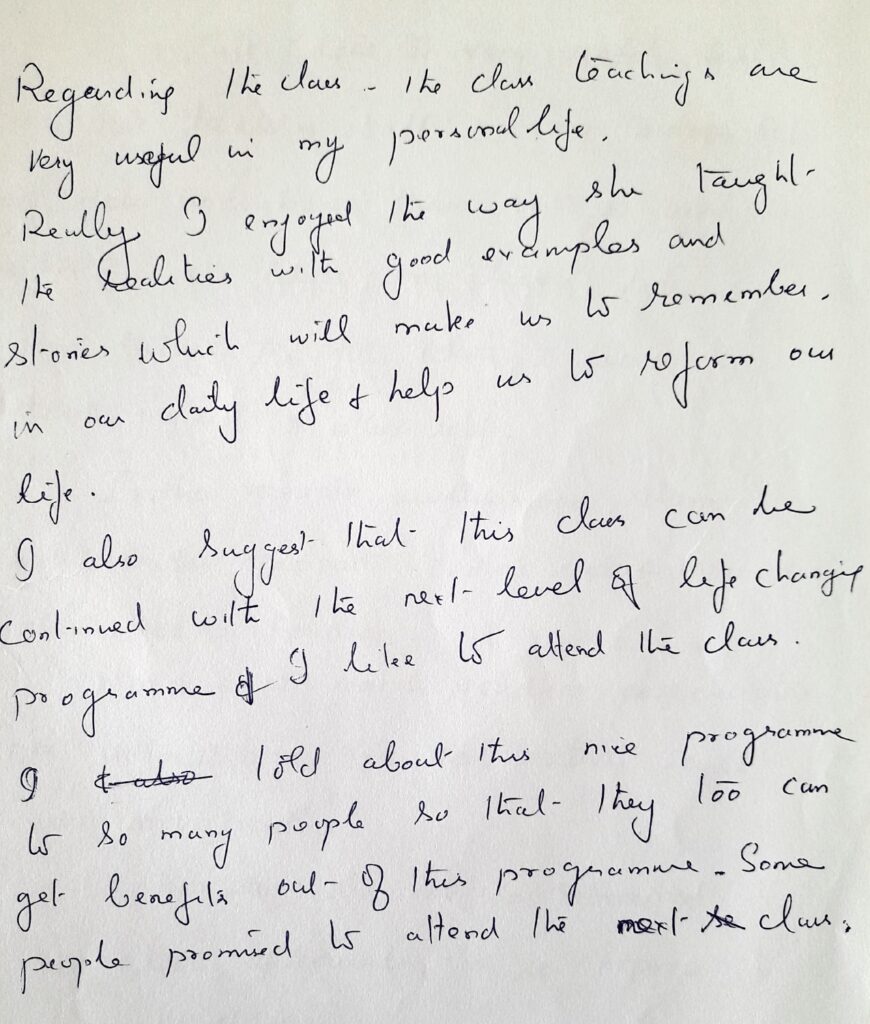 Regarding the class - the class teachings are
very useful in my personal life.
Really I enjoyed the way she taught
the realities with good examples and
stories which will make us to remember.
in our daily life & help us to reform our
life.
I also suggest that this class can be
continued with the next level of life changing
programme & I like to attend the class.
I told about this nice programme
to so many people so that they too can
get benefits out of this programme. Some
people promised to attend the next class.